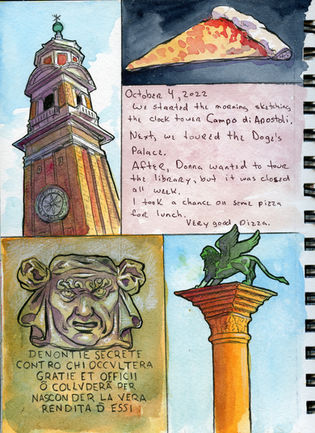 October 4, 2022
We started the morning sketching
the clock tower Campo di Apostoli.
Next, we toured the Doge's
Palace.
After, Donna wanted to tour
the library, but it was closed
all week.
I took a chance on some pizza
for lunch.
Very good pizza.
DENONTIE SECRETE
CONTRO CHI OCCVLTERA
GRATIE ET OFFICII
Ó COLLVDERA PER
NASCONDER LA VERA
RENDITA D ESSI